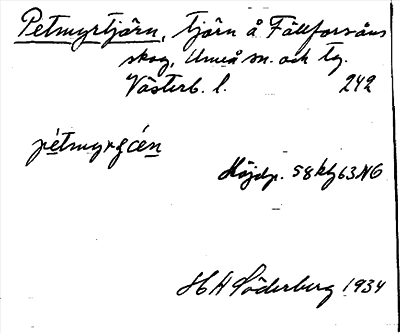 Petmyrtjärn, tjärn å Fällforsåns
skog, Umeå sn. och tg.
Västerb. l. 242
pétmyrʂɕén
Höjdp. 58 kbf 63 NG
H A Söderberg 1934